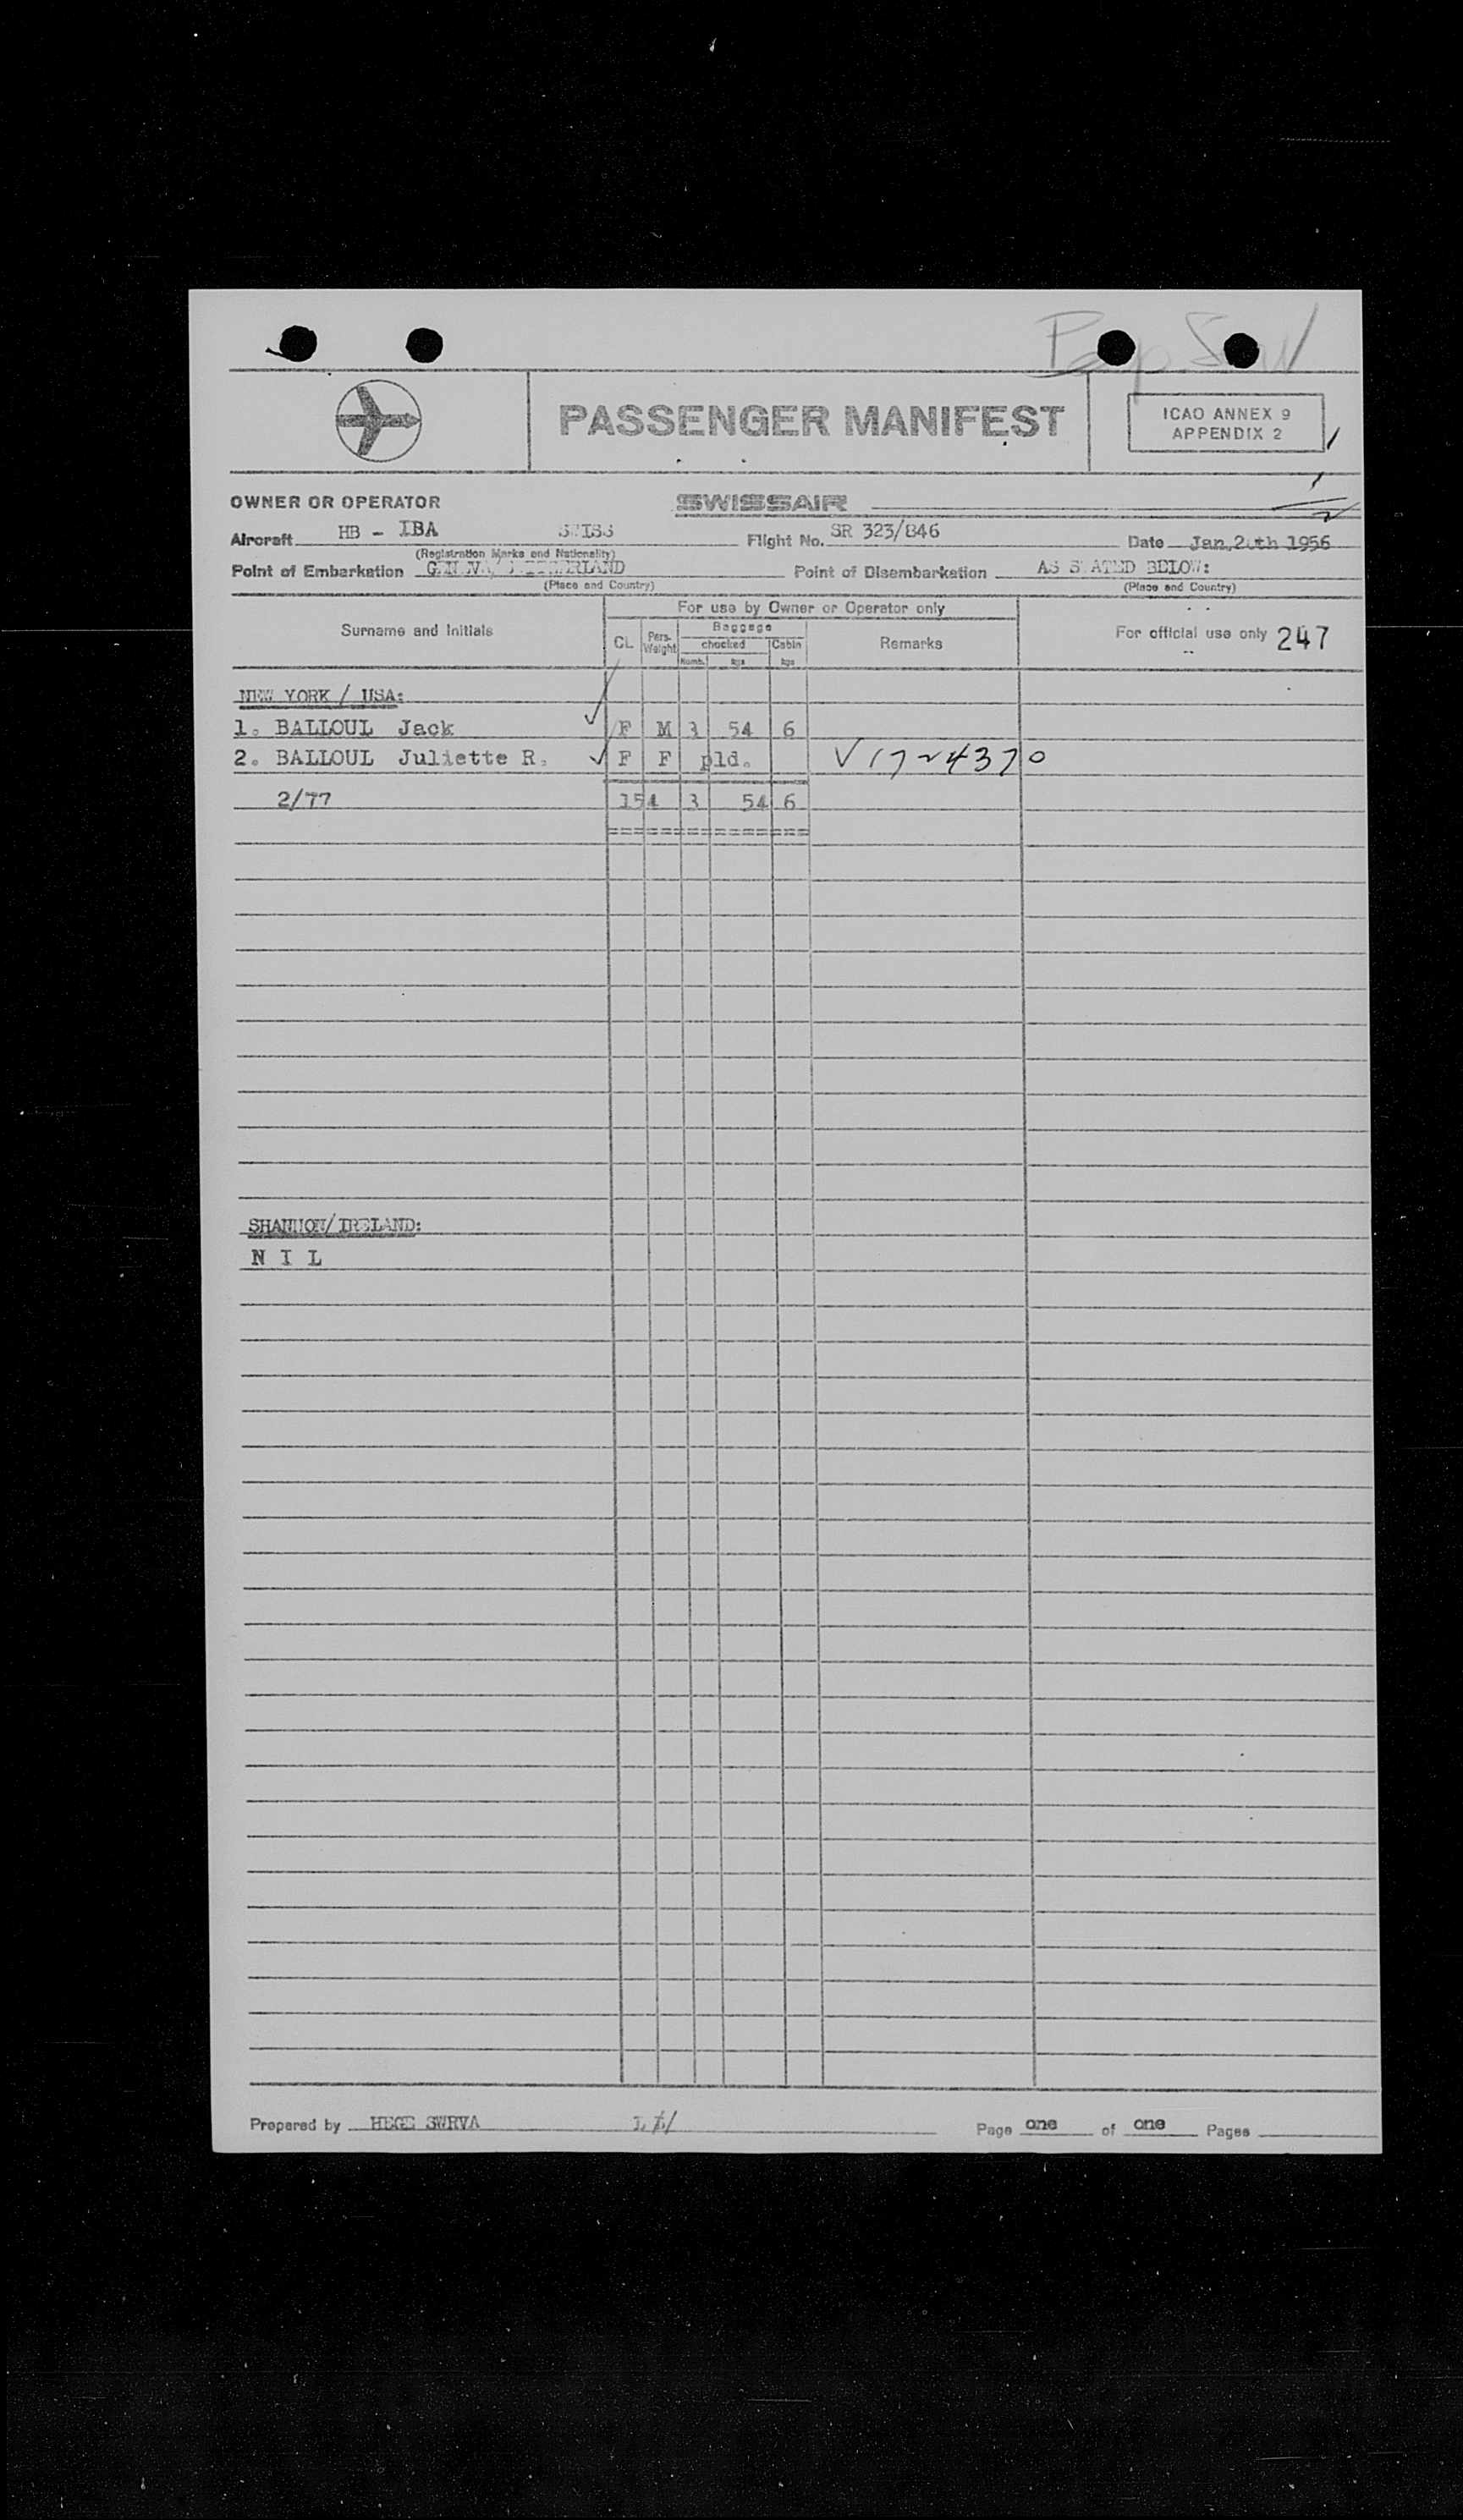 PASSENGER MANIFEST
ICAO ANNEX 9
APPENDIX 2
OWNER OR OPERATOR SWISSAIR
Aircraft HB - IBA SWISS Flight No. SR 323/846 Date Jan. 1956
(Registration Marks and Nationality)
Point of Embarkation GENEVA/SWITZERLAND Point of Disembarkation AS STATED BELOW:
(Place and Country) (Place and Country)
For use by Owner or Operator only
Surname and Initials CL. Pers. Weight Baggage checked Numb. kgs Cabin kgs Remarks For official use only 247
NEW YORK / USA:
1. BALLOUL Jack F M 3 54 6
2. BALLOUL Juliette R. F F pld. V
2/77 154 3 54 6
SHANNON/IRELAND:
N I L
Prepared by HEGE SWRVA Page one of one Pages